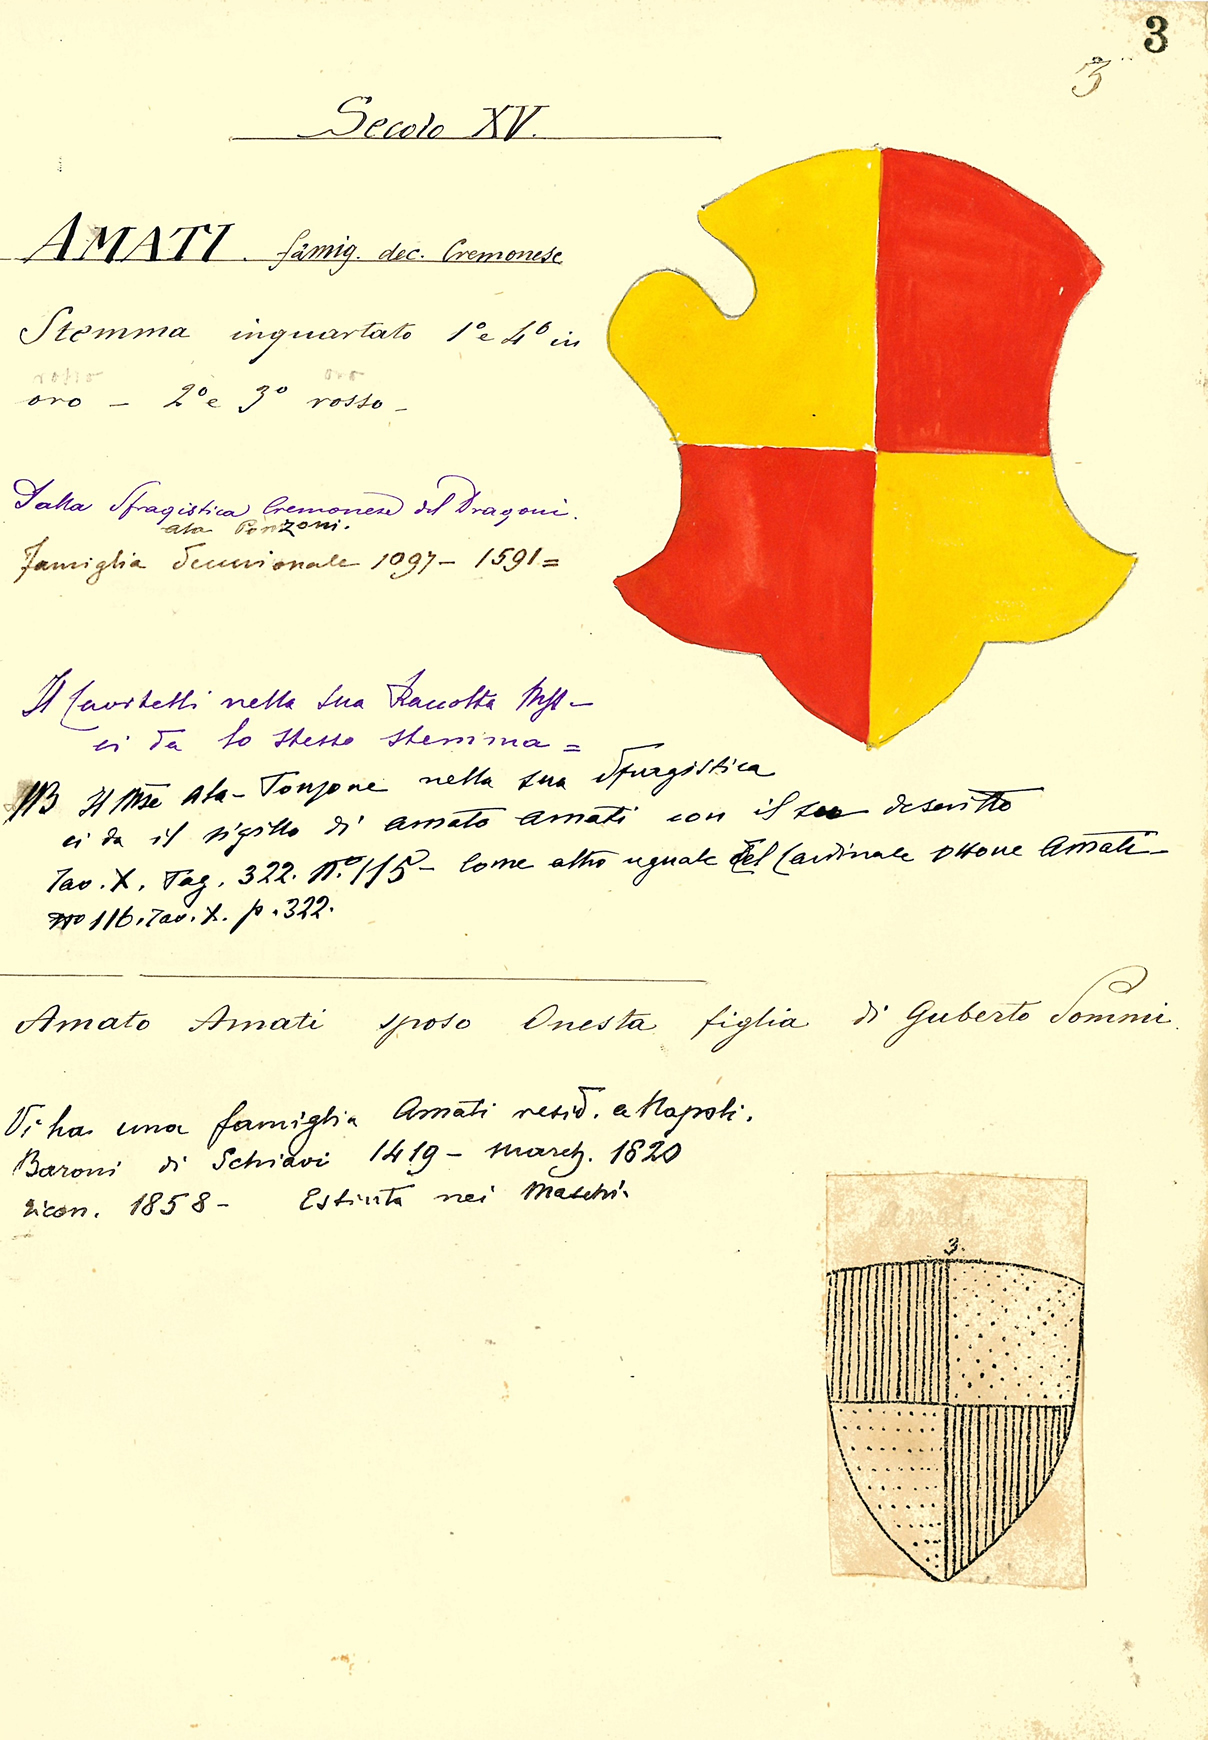 3
3
Secolo XV.
AMATI. famig. dec. Cremonese
Stemma inquartato 1º e 4º in
rosso oro
oro – 2º e 3º rosso –
Dalla Sfragistica Cremonese del Dragoni.
ala Ponzoni.
Famiglia decurionale 1097 – 1591 =
Il nella sua Raccolta
ci da lo stesso stemma =
NB Il Mse Ala-Ponzone nella sua Sfragistica
ci da il sigillo di Amato Amati con il descritto
Tav. X. Pag. 322. Nº 115 – Come altro uguale del Cardinale Ottone Amati –
116. Tav. X. p. 322.
Amato Amati sposo Onesta figlia di Guberto Sommi.
Vi ha una famiglia Amati resid. a Napoli.
Baroni di Schiavi 1419 – march. 1820
ricon. 1858 – Estinta nei Maschi.
Amati
3.